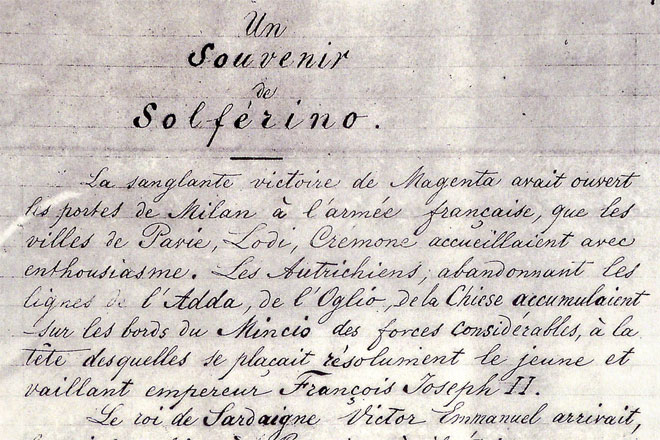 Un
Souvenir
de
Solférino.
La sanglante victoire de Magenta avait ouvert
les portes de Milan à l'armée française, que les
villes de Pavie, Lodi, Crémone accueillaient avec
enthousiasme. Les Autrichiens, abandonnant les
lignes de l'Adda, de l'Oglio, de la Chiese accumulaient
sur les bords du Mincio des forces considérables, à la
tête desquelles se plaçait résolument le jeune et
vaillant empereur François Joseph II.
Le roi de Sardaigne Victor Emmanuel arrivait,